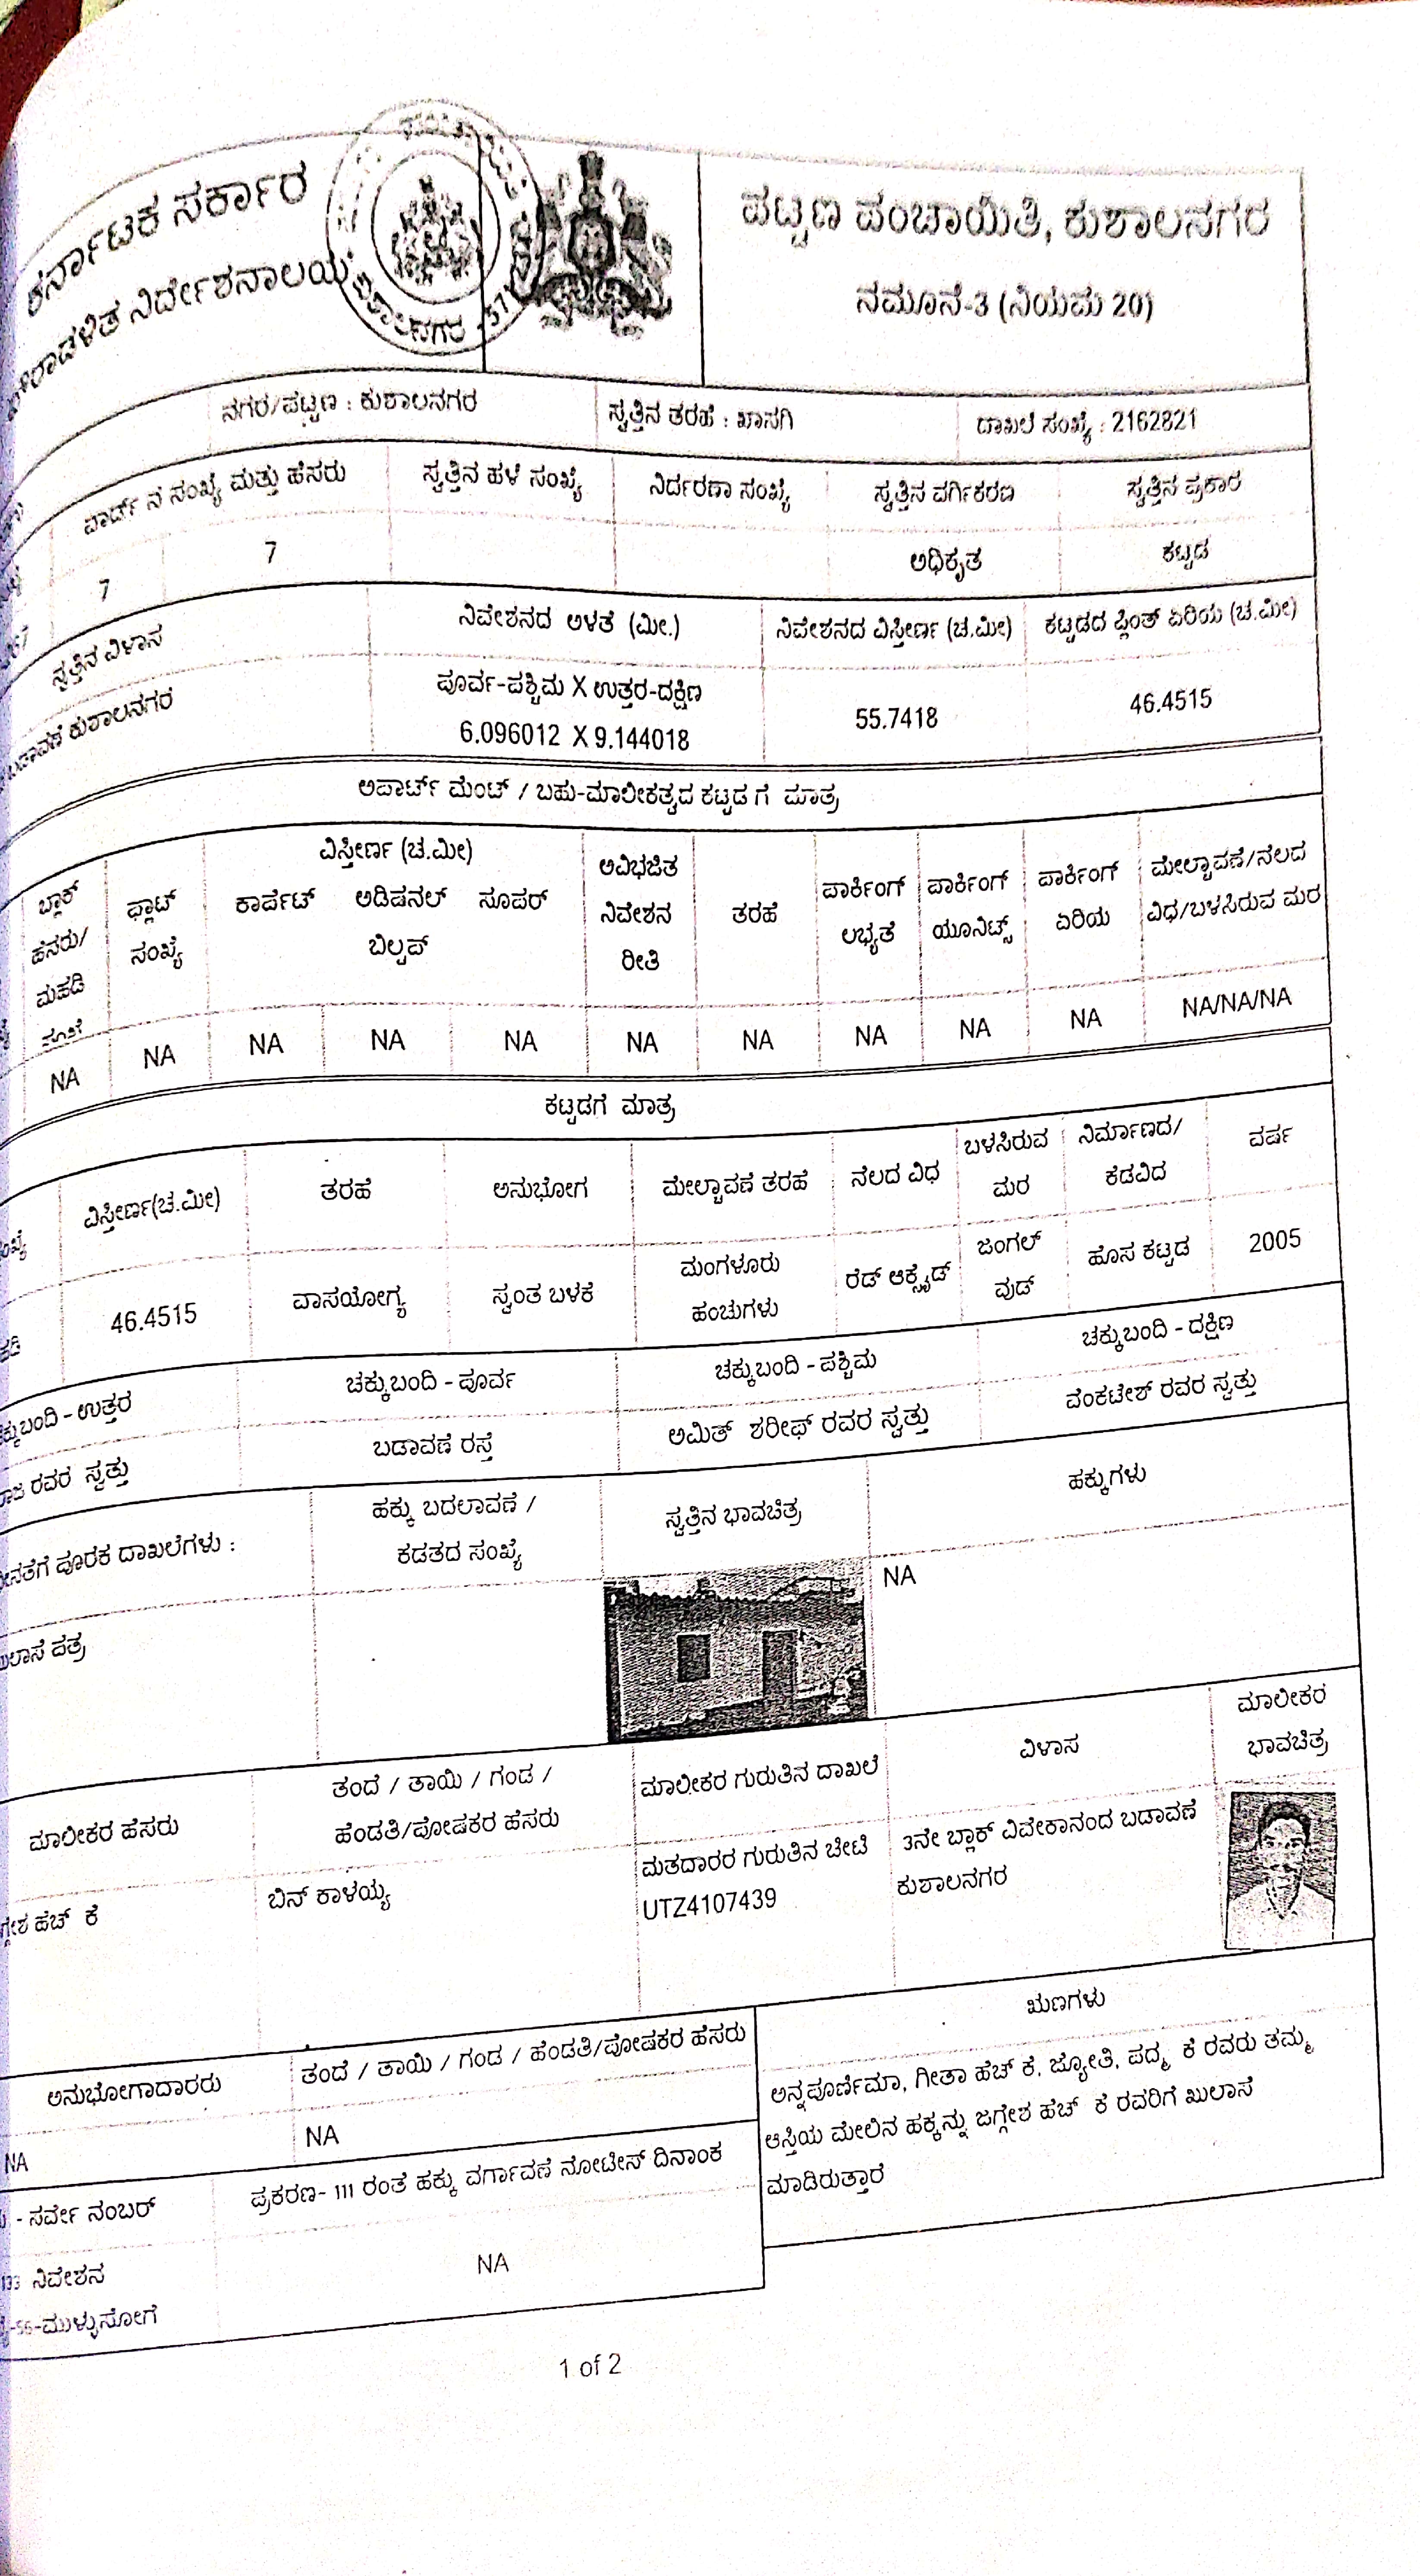 ಕರ್ನಾಟಕ ಸರ್ಕಾರ
ನಿರ್ದೇಶನಾಲಯ
ಪಟ್ಟಣ ಪಂಚಾಯಿತಿ, ಕುಶಾಲನಗರ
ನಮೂನೆ-3 (ನಿಯಮ 20)
ನಗರ/ಪಟ್ಟಣ : ಕುಶಾಲನಗರ ಸ್ವತ್ತಿನ ತರಹೆ : ಖಾಸಗಿ ದಾಖಲೆ ಸಂಖ್ಯೆ : 2162821
ವಾರ್ಡ್ ನ ಸಂಖ್ಯೆ ಮತ್ತು ಹೆಸರು ಸ್ವತ್ತಿನ ಹಳೆ ಸಂಖ್ಯೆ ನಿರ್ದರಣಾ ಸಂಖ್ಯೆ ಸ್ವತ್ತಿನ ವರ್ಗಿಕರಣ ಸ್ವತ್ತಿನ ಪ್ರಕಾರ
7 7 ಅಧಿಕೃತ ಕಟ್ಟಡ
ಸ್ವತ್ತಿನ ವಿಳಾಸ ನಿವೇಶನದ ಅಳತೆ (ಮೀ.) ನಿವೇಶನದ ವಿಸ್ತೀರ್ಣ (ಚ.ಮೀ) ಕಟ್ಟಡದ ಪ್ಲಿಂತ್ ಏರಿಯ (ಚ.ಮೀ)
ಕುಶಾಲನಗರ ಪೂರ್ವ-ಪಶ್ಚಿಮ X ಉತ್ತರ-ದಕ್ಷಿಣ 55.7418 46.4515
6.096012 X 9.144018
ಅಪಾರ್ಟ್ ಮೆಂಟ್ / ಬಹು-ಮಾಲೀಕತ್ವದ ಕಟ್ಟಡ ಗೆ ಮಾತ್ರ
ಬ್ಲಾಕ್ ಫ್ಲಾಟ್ ವಿಸ್ತೀರ್ಣ (ಚ.ಮೀ) ಅವಿಭಜಿತ ಪಾರ್ಕಿಂಗ್ ಪಾರ್ಕಿಂಗ್ ಪಾರ್ಕಿಂಗ್ ಮೇಲ್ಚಾವಣಿ/ನೆಲದ
ಹೆಸರು/ ಸಂಖ್ಯೆ ಕಾರ್ಪೆಟ್ ಅಡಿಷನಲ್ ಸೂಪರ್ ನಿವೇಶನ ತರಹೆ ಲಭ್ಯತೆ ಯೂನಿಟ್ಸ್ ಏರಿಯ ವಿಧ/ಬಳಸಿರುವ ಮರ
ಮಹಡಿ ಬಿಲ್ಟಪ್ ರೀತಿ
NA NA NA NA NA NA NA NA NA NA NA/NA/NA
ಕಟ್ಟಡಗೆ ಮಾತ್ರ
ವಿಸ್ತೀರ್ಣ(ಚ.ಮೀ) ತರಹೆ ಅನುಭೋಗ ಮೇಲ್ಚಾವಣಿ ತರಹೆ ನೆಲದ ವಿಧ ಬಳಸಿರುವ ನಿರ್ಮಾಣದ/ ವರ್ಷ
ಮರ ಕೆಡವಿದ
46.4515 ವಾಸಯೋಗ್ಯ ಸ್ವಂತ ಬಳಕೆ ಮಂಗಳೂರು ರೆಡ್ ಆಕ್ಸೈಡ್ ಜಂಗಲ್ ಹೊಸ ಕಟ್ಟಡ 2005
ಹಂಚುಗಳು ವುಡ್
ಚಕ್ಕುಬಂದಿ - ಪೂರ್ವ ಚಕ್ಕುಬಂದಿ - ಪಶ್ಚಿಮ ಚಕ್ಕುಬಂದಿ - ದಕ್ಷಿಣ
- ಉತ್ತರ
ರವರ ಸ್ವತ್ತು ಬಡಾವಣೆ ರಸ್ತೆ ಅಮಿತ್ ಶರೀಫ್ ರವರ ಸ್ವತ್ತು ವೆಂಕಟೇಶ್ ರವರ ಸ್ವತ್ತು
ಪೂರಕ ದಾಖಲೆಗಳು : ಹಕ್ಕು ಬದಲಾವಣೆ / ಸ್ವತ್ತಿನ ಭಾವಚಿತ್ರ ಹಕ್ಕುಗಳು
ಕಡತದ ಸಂಖ್ಯೆ
ಪತ್ರ NA
ಮಾಲೀಕರ ಹೆಸರು ತಂದೆ / ತಾಯಿ / ಗಂಡ / ಮಾಲೀಕರ ಗುರುತಿನ ದಾಖಲೆ ವಿಳಾಸ ಮಾಲೀಕರ
ಹೆಂಡತಿ/ಪೋಷಕರ ಹೆಸರು ಭಾವಚಿತ್ರ
ಹೆಚ್ ಕೆ ಬಿನ್ ಕಾಳಯ್ಯ ಮತದಾರರ ಗುರುತಿನ ಚೀಟಿ 3ನೇ ಬ್ಲಾಕ್ ವಿವೇಕಾನಂದ ಬಡಾವಣೆ
UTZ4107439 ಕುಶಾಲನಗರ
ಅನುಭೋಗಾದಾರರು ತಂದೆ / ತಾಯಿ / ಗಂಡ / ಹೆಂಡತಿ/ಪೋಷಕರ ಹೆಸರು ಋಣಗಳು
NA NA
ಅನ್ನಪೂರ್ಣಿಮಾ, ಗೀತಾ ಹೆಚ್ ಕೆ, ಜ್ಯೋತಿ, ಪದ್ಮ ಕೆ ರವರು ತಮ್ಮ
ಆಸ್ತಿಯ ಮೇಲಿನ ಹಕ್ಕನ್ನು ಜಗ್ಗೇಶ ಹೆಚ್ ಕೆ ರವರಿಗೆ ಖುಲಾಸೆ
ಮಾಡಿರುತ್ತಾರೆ
- ಸರ್ವೇ ನಂಬರ್ ಪ್ರಕರಣ- 111 ರಂತೆ ಹಕ್ಕು ವರ್ಗಾವಣೆ ನೋಟೀಸ್ ದಿನಾಂಕ
ನಿವೇಶನ NA
-56-ಮುಳ್ಳುಸೋಗೆ
1 of 2